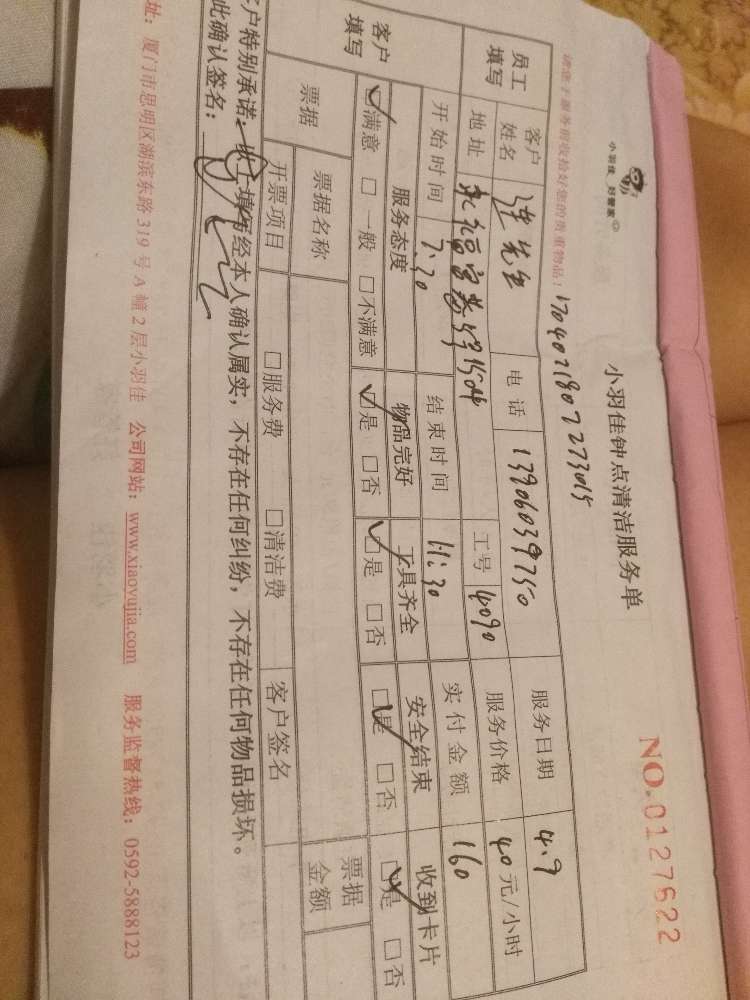 小羽佳 好管家
小羽佳钟点清洁服务单
NO.0127622
请您于服务前收拾好您的贵重物品!
1704021807273015
员工填写 客户姓名 连先生 电话 13906039750 服务日期 4.9
地址 1504 工号 4090 服务价格 40元/小时
客户填写 开始时间 7:30 结束时间 11:30 实付金额 160
服务态度 物品完好 工具齐全 安全结束 收到卡片
☑满意 □一般 □不满意 ☑是 □否 ☑是 □否 ☑是 □否 ☑是 □否
票据 票据名称 票据金额
开票项目 □服务费 □清洁费 客户签名
客户特别承诺:以上填写经本人确认属实,不存在任何纠纷,不存在任何物品损坏。
此确认签名:
址:厦门市思明区湖滨东路319号A幢2层小羽佳 公司网站:www.xiaoyujia.com 服务监督热线:0592-5888123